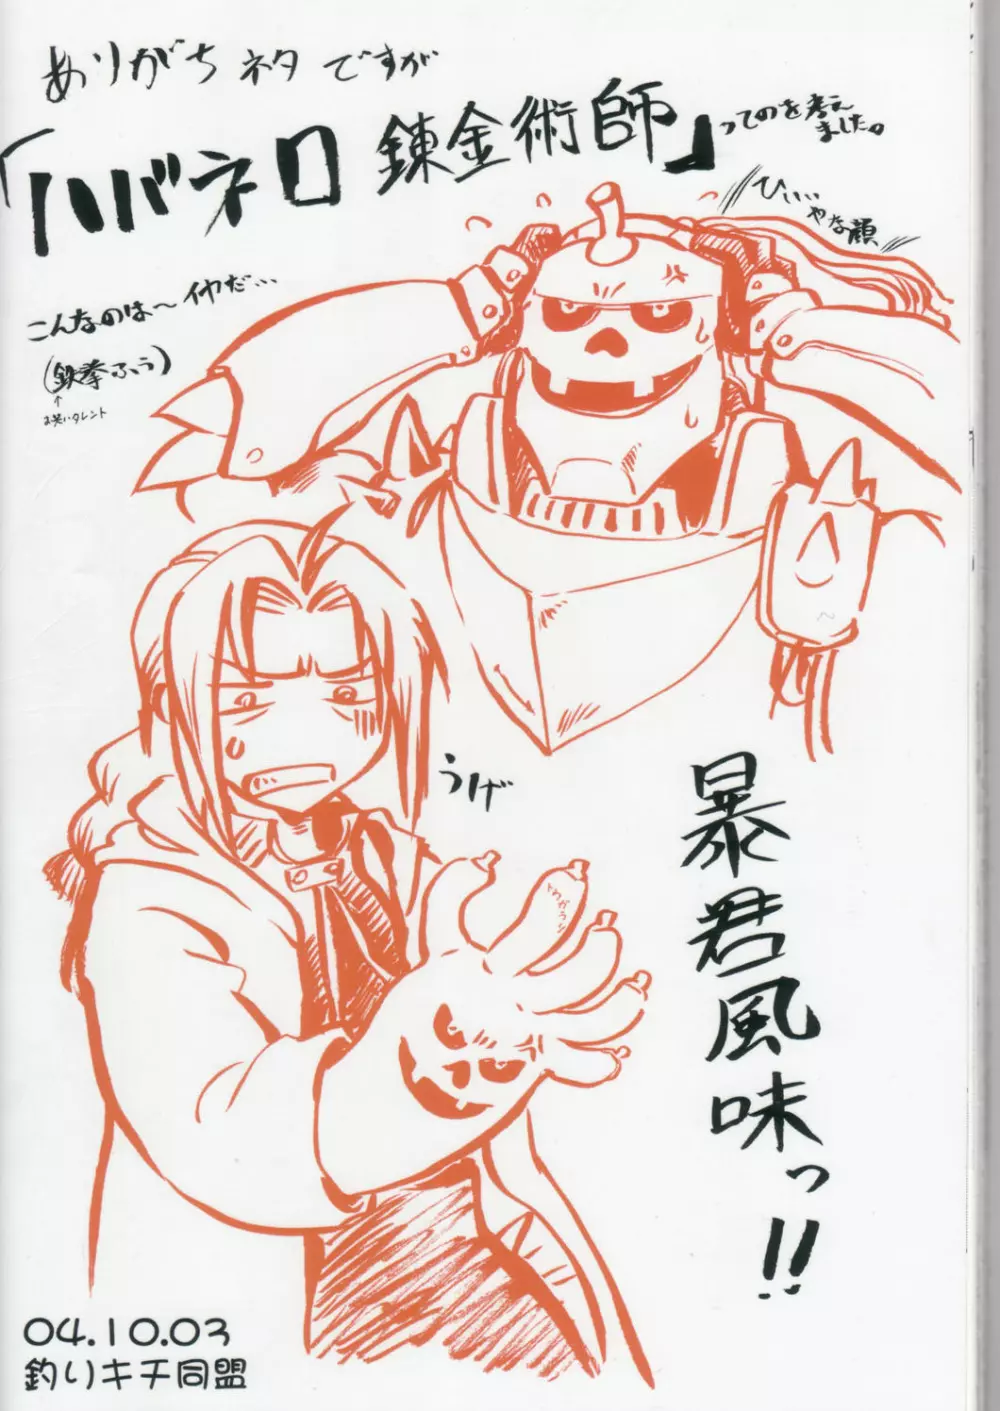 ありがち ネタ ですが
「ハバネロ 錬金術師」ってのを考え
ました。
ひぃぃぃ
やな顔
こんなのは～イヤだ…
(鉄拳ふう)
↑
お笑いタレント
うげ
トウガラシ
暴君風味っ!!
04.10.03
釣りキチ同盟